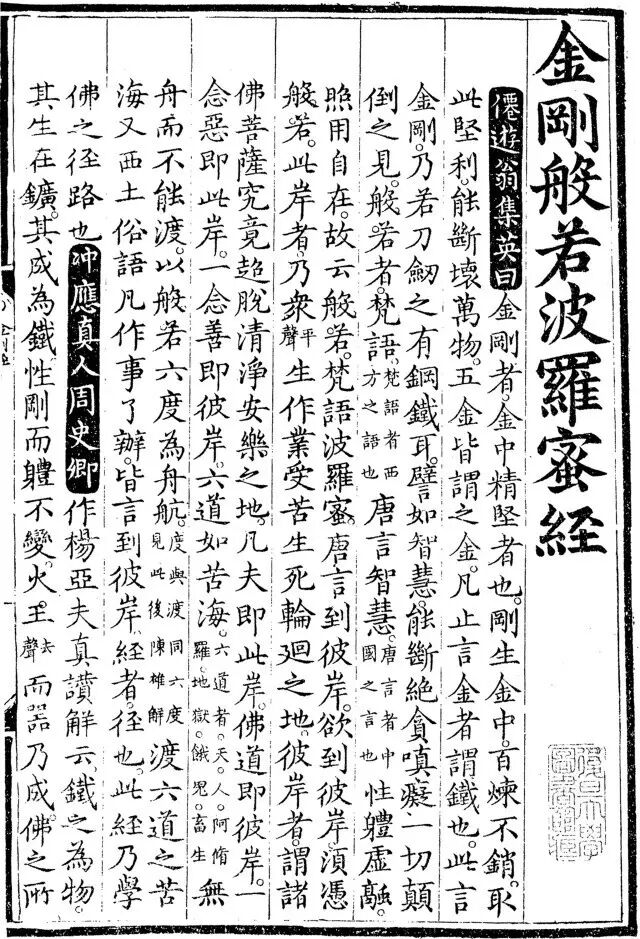 金剛般若波羅蜜經
僊遊翁集英曰金剛者。金中精堅者也。剛生金中。百煉不銷。取
此堅利。能斷壞萬物。五金皆謂之金。凡止言金者謂鐵也。此言
金剛。乃若刀劔之有鋼鐵耳。譬如智慧。能斷絕貪嗔癡一切顛
倒之見。般若者。梵語。梵語者西方之語也唐言智慧。唐言者中國之言也性軆虛融。
照用自在。故云般若。梵語波羅蜜。唐言到彼岸。欲到彼岸。須憑
般若。此岸者。乃衆平聲生作業受苦生死輪廻之地。彼岸者謂諸
佛菩薩究竟超脫清淨安樂之地。凡夫即此岸。佛道即彼岸。一
念惡即此岸。一念善即彼岸。六道如苦海。六道者。天。人。阿脩羅。地獄。餓鬼。畜生無
舟而不能渡。以般若六度為舟航。度與渡同六度見此後陳雄解渡六道之苦
海又西土俗語凡作事了辦。皆言到彼岸。經者。徑也。此經乃學
佛之徑路也冲應真人周史卿作楊亞夫真讚解云。鐵之為物。
其生在鑛。其成為鐵。性剛而軆不變。火王去聲而器乃成。佛之所